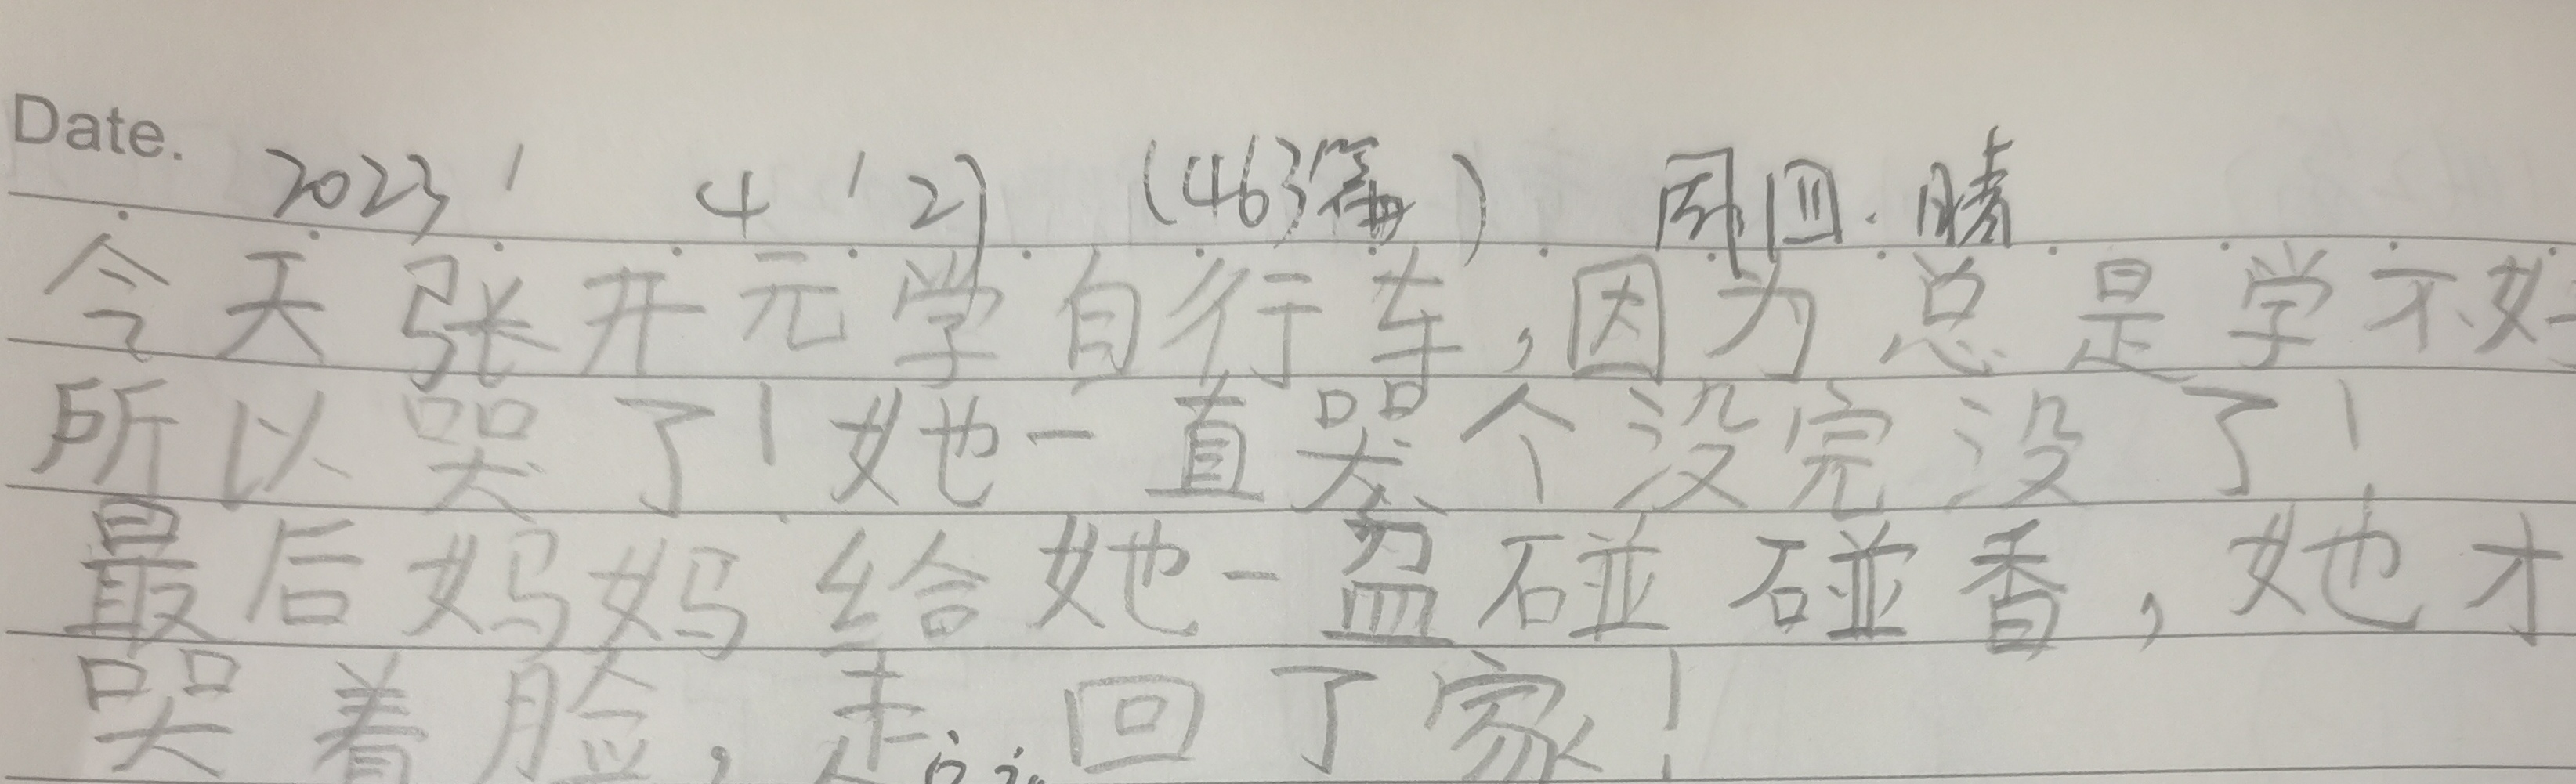 Date.
2023' 4'27 (463篇) 周四.晴
今天张开元学自行车,因为总是学不好
所以哭了!她一直哭个没完没了!
最后妈妈给她一盆碰碰香,她才
哭着脸,走回了家!